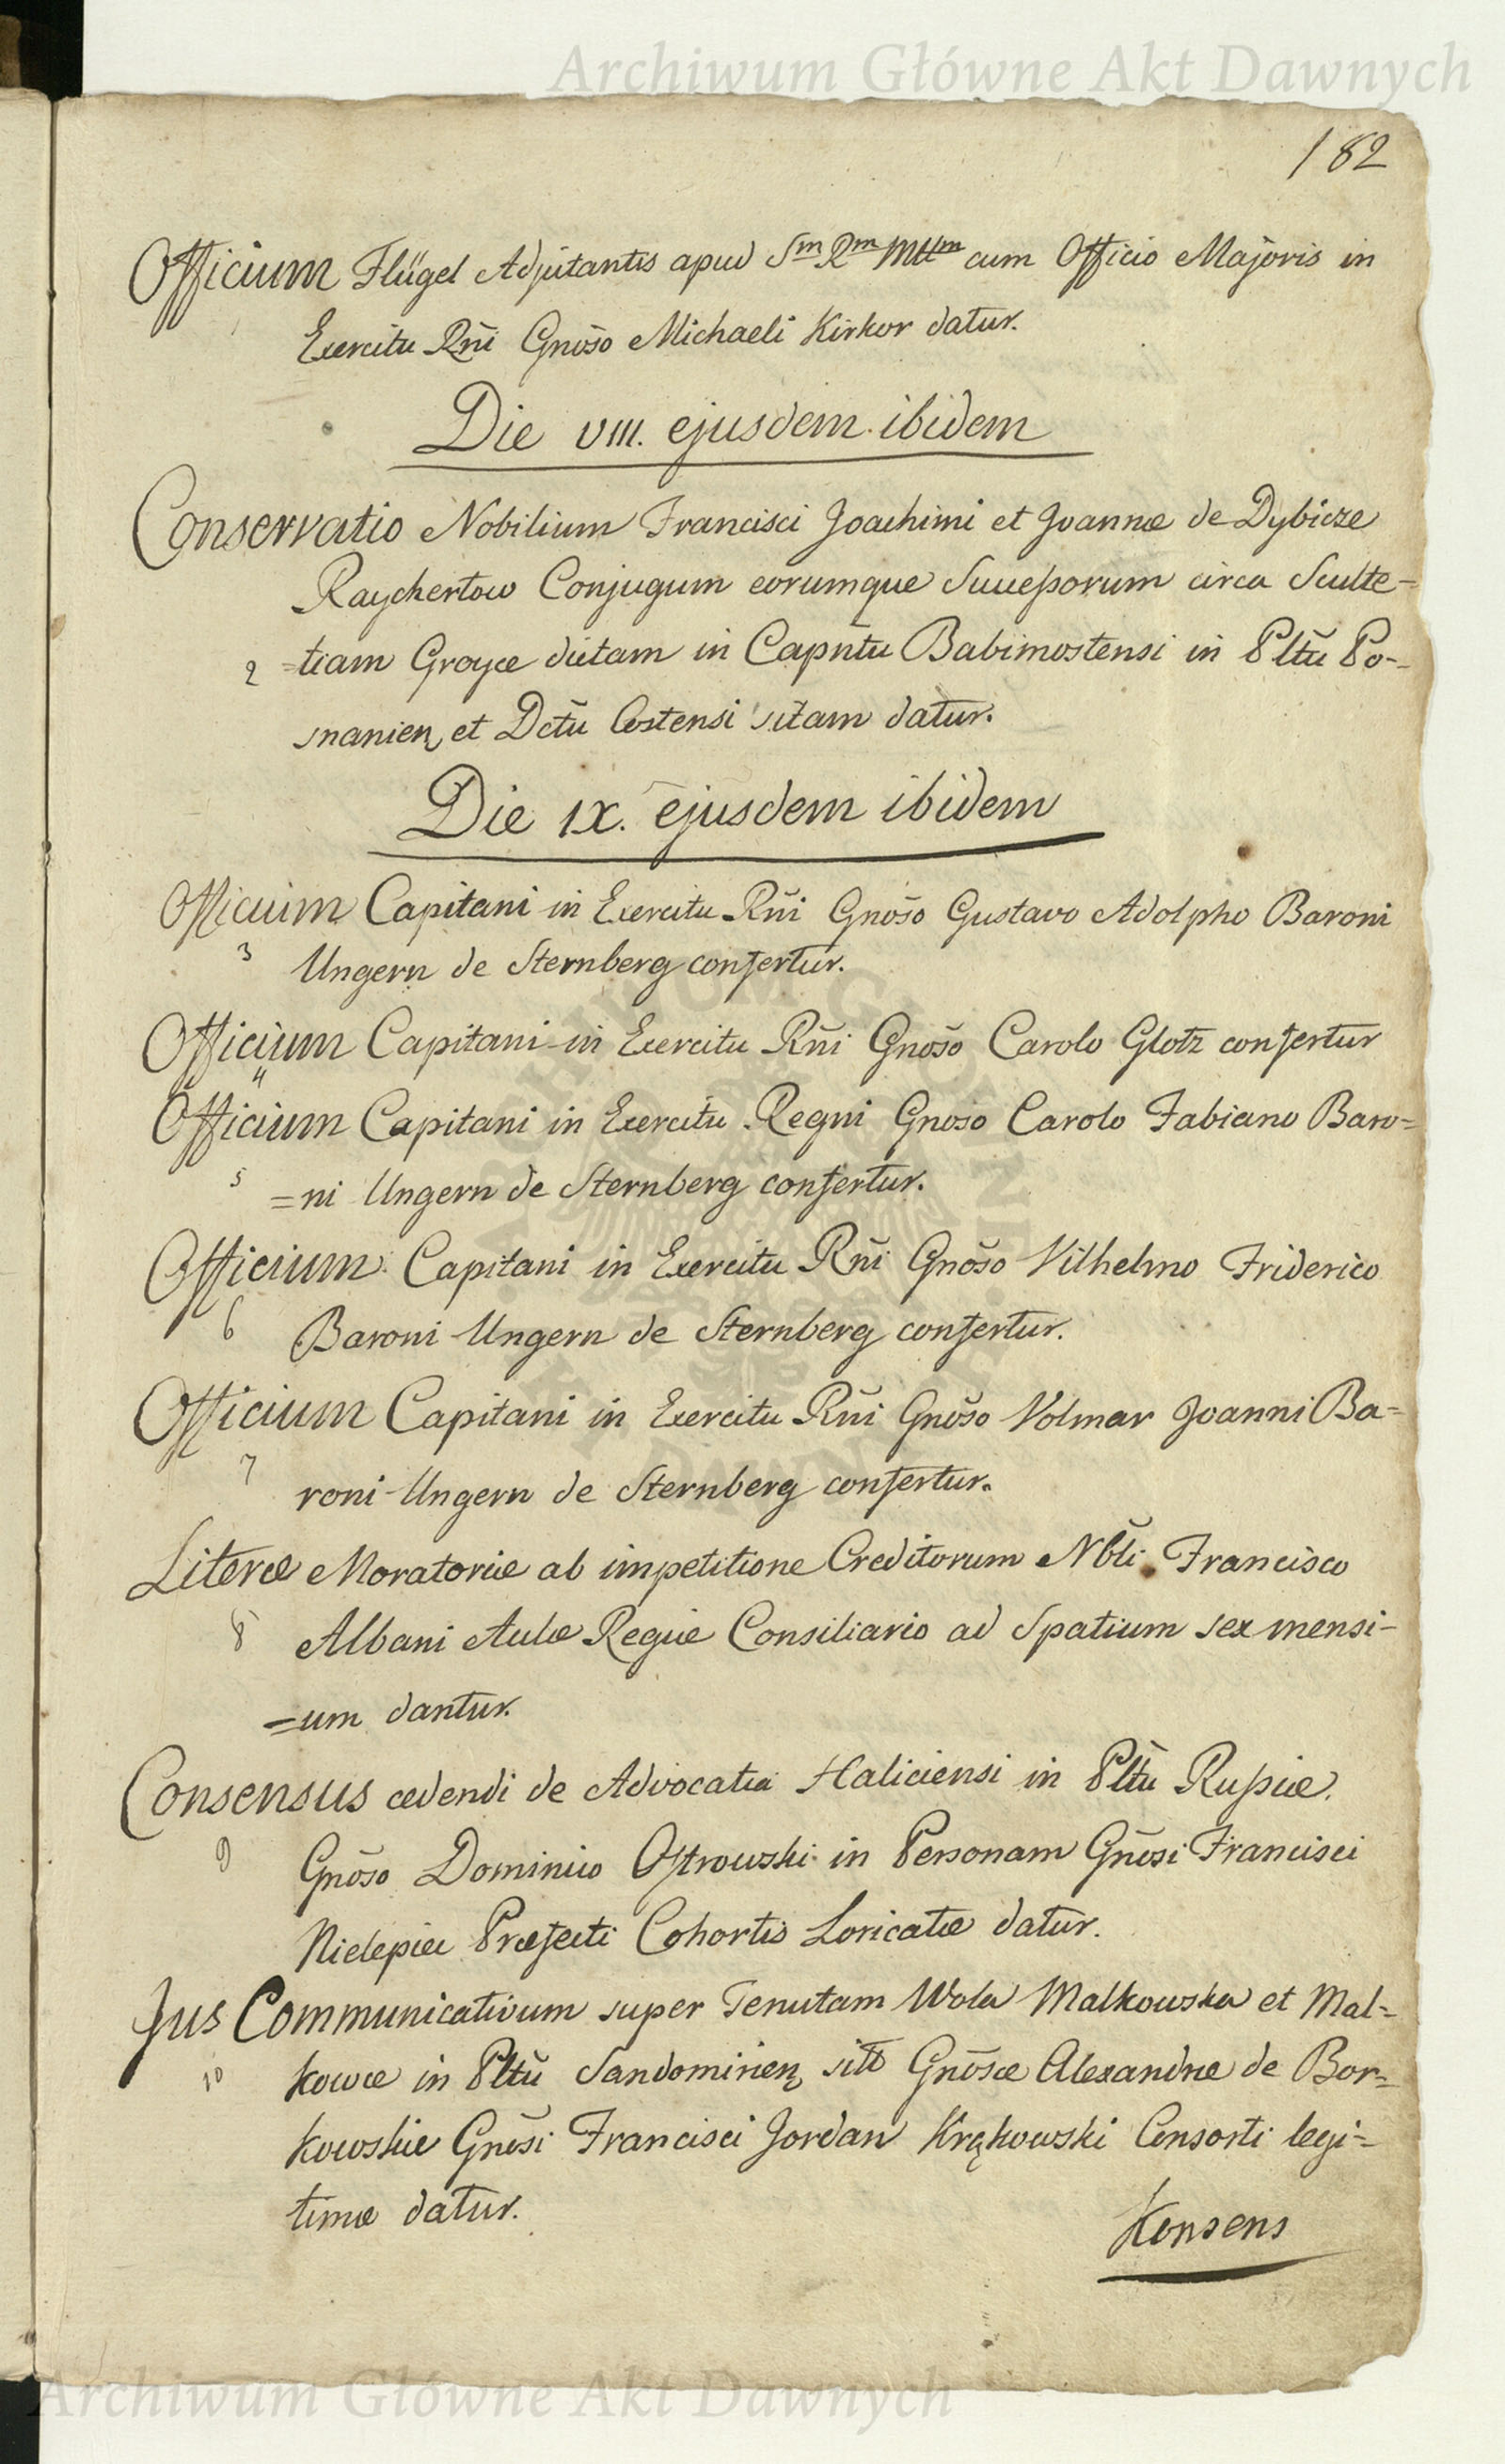 Archiwum Główne Akt Dawnych
182
Officium Flügel Adjutantis apud Sm Rm Mttm cum Officio Majoris in
1 Exercitu Rñi Gnõso Michaeli Kirkor datur.
Die VIII. ejusdem ibidem
Conservatio Nobilium Francisci Joachimi et Joannæ de Dybicze
Raychertow Conjugum eorumque Succeßorum circa Sculte-
2 =tiam Groyce dictam in Capñtu Babimostensi in Pltũ Po-
snanien et Dctũ Costensi sitam datur.
Die IX. ejusdem ibidem
Officium Capitani in Exercitu Rñi Gnõso Gustavo Adolpho Baroni
3 Ungern de Sternberg confertur.
Officium Capitani in Exercitu Rñi Gnõso Carolo Glotz confertur
4
Officium Capitani in Exercitu Regni Gnoso Carolo Fabiano Baro=
5 =ni Ungern de Sternberg confertur.
Officium Capitani in Exercitu Rñi Gnõso Vilhelmo Friderico
6 Baroni Ungern de Sternberg confertur.
Officium Capitani in Exercitu Rñi Gnõso Volmar Joanni Ba=
7 roni Ungern de Sternberg confertur.
Literæ Moratoriæ ab impetitione Creditorum Nbli Francisco
8 Albani Aulæ Regiæ Consiliario ad Spatium sex mensi-
=um dantur.
Consensus cedendi de Advocatia Haliciensi in Pltũ Rußiæ.
9 Gnõso Dominico Ostrowski in Personam Gnõsi Francisci
Nielepiec Præfecti Cohortis Loricatæ datur.
Jus Communicativum super Tenutam Wola Malkowska et Mal=
10 kowce in Pltũ Sandomirien sitt Gnõsæ Alexandræ de Bor=
kowskie Gnõsi Francisci Jordan Krąkowski Consorti legi=
timæ datur.
Konsens
Archiwum Główne Akt Dawnych